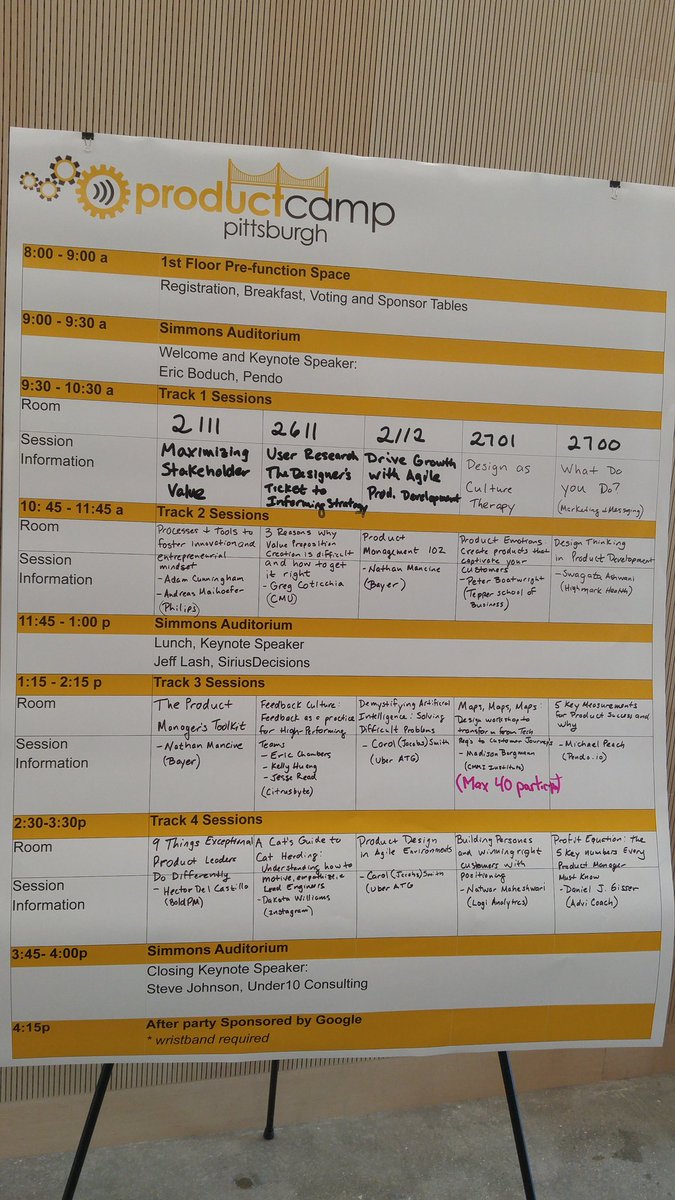 productcamp
pittsburgh
8:00 - 9:00 a 1st Floor Pre-function Space
Registration, Breakfast, Voting and Sponsor Tables
9:00 - 9:30 a Simmons Auditorium
Welcome and Keynote Speaker:
Eric Boduch, Pendo
9:30 - 10:30 a Track 1 Sessions
Room
2111
2611
2112
2701
2700
Session
Information
Maximizing
Stakeholder
Value
User Research
The Designer's
Ticket to
Informing Strategy
Drive Growth
with Agile
Prod. Development
Design as
Culture
Therapy
What Do
you Do?
(Marketing + Messaging)
10: 45 - 11:45 a Track 2 Sessions
Room
Session
Information
Processes + Tools to
foster innovation and
entrepreneurial
mindset
- Adam Cunningham
- Andreas Maihoefer
(Philips)
3 Reasons Why
Value Proposition
Creation is difficult
and how to get
it right
- Greg Coticchia
(CMU)
Product
Management 102
- Nathan Mancine
(Bayer)
Product Emotions
Create products that
captivate your
customers
- Peter Boatwright
(Tepper school of
Business)
Design Thinking
in Product Development
- Swagata Ashwani
(Highmark Health)
11:45 - 1:00 p Simmons Auditorium
Lunch, Keynote Speaker
Jeff Lash, SiriusDecisions
1:15 - 2:15 p Track 3 Sessions
Room
Session
Information
The Product
Manager's Toolkit
- Nathan Mancine
(Bayer)
Feedback Culture:
Feedback as a practice
for High-Performing
Teams
- Eric Chambers
- Kelly Huang
- Jesse Read
(Citrusbyte)
Demystifying Artificial
Intelligence: Solving
Difficult Problems
- Carol (Jacobs) Smith
(Uber ATG)
Maps, Maps, Maps:
Design workshop to
transform from Tech
Req's to Customer Journeys
- Madison Borgmann
(CMMI Institute)
(Max 40 participat)
5 Key Measurements
for Product Success and
Why
- Michael Peach
(Pendo.io)
2:30-3:30p Track 4 Sessions
Room
Session
Information
9 Things Exceptional
Product Leaders
Do Differently
- Hector Del Castillo
(BoldPM)
A Cat's Guide to
Cat Herding:
Understanding how to
motive, empathize, &
Lead Engineers
- Dakota Williams
(Instagram)
Product Design
in Agile Environments
- Carol (Jacobs) Smith
(Uber ATG)
Building Personas
and winning right
customers with
positioning
- Natwar Maheshwari
(Logi Analytics)
Profit Equation: the
5 Key numbers Every
Product Manager
Must Know
- Daniel J. Gisser
(Advi Coach)
3:45- 4:00p Simmons Auditorium
Closing Keynote Speaker:
Steve Johnson, Under10 Consulting
4:15p After party Sponsored by Google
* wristband required